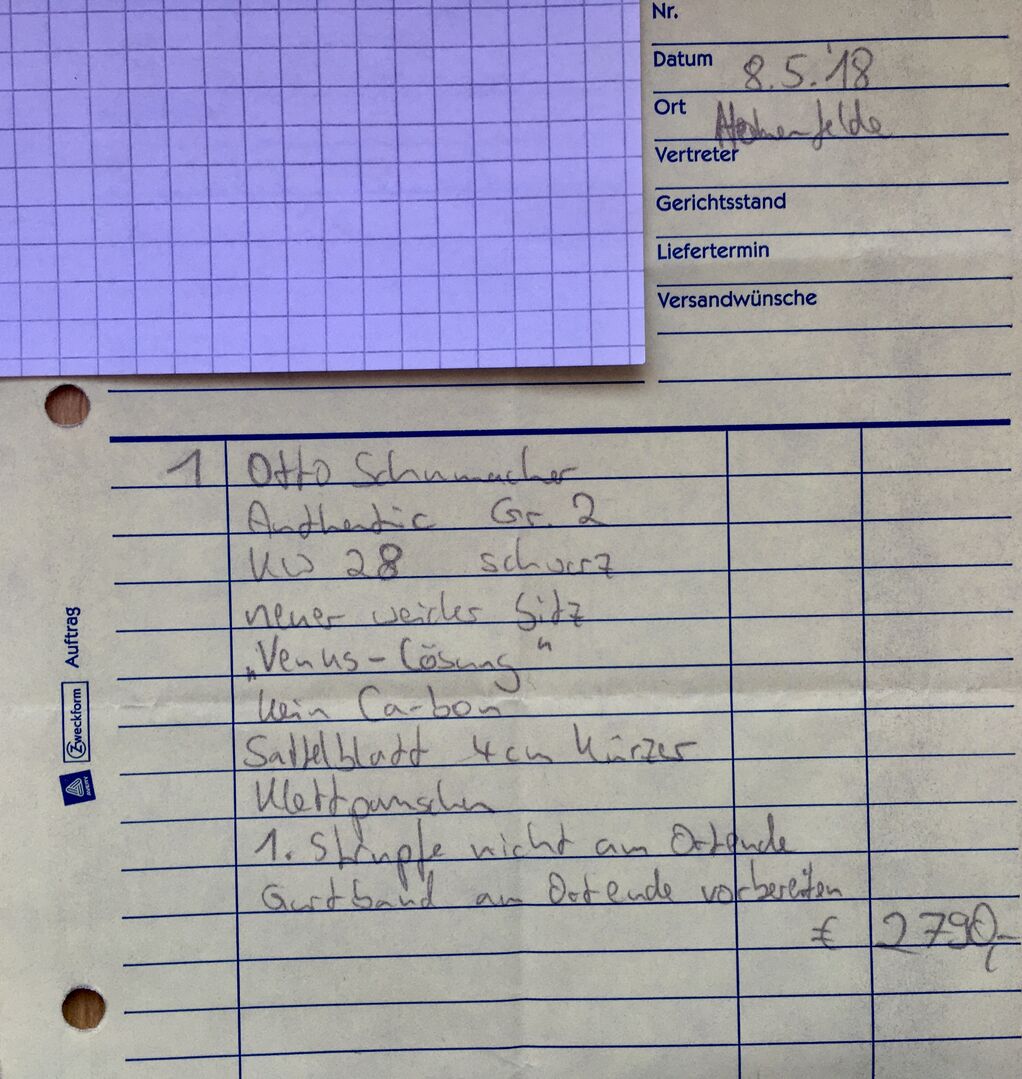 Nr.
Datum 8.5.'18
Ort Hohenfelde
Vertreter
Gerichtsstand
Liefertermin
Versandwünsche
1 Otto Schumacher
Authentic Gr. 2
KW 28 schwarz
neuer weicher Sitz
„Venus-Lösung"
kein Carbon
Sattelblatt 4cm kürzer
Klettpauschen
1. Strupfe nicht am Ortende
Gurtband am Ortende vorbereiten
€ 2790,-
Auftrag
Zweckform
AVERY